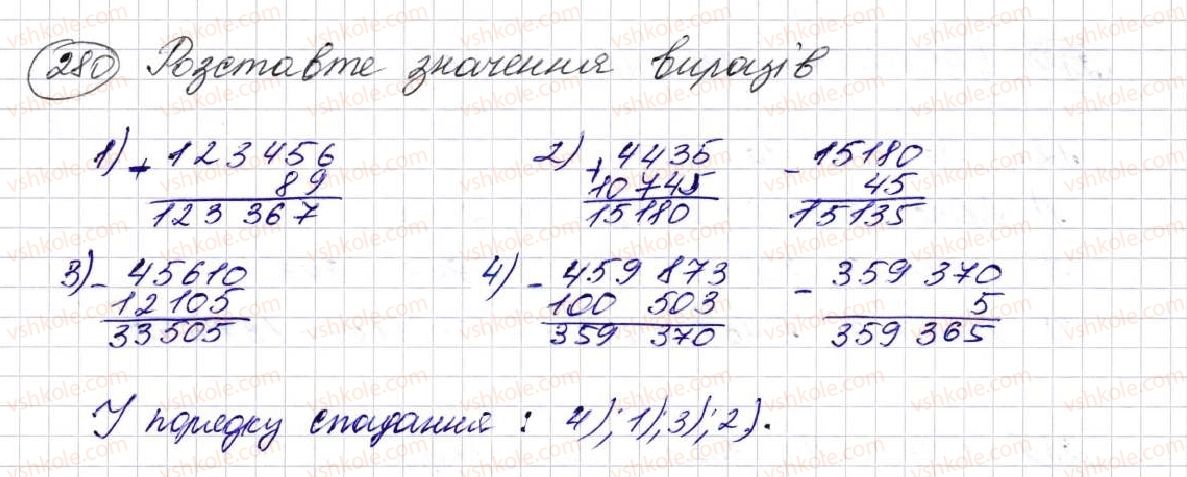 280 Розставте значення виразів
1) + 123456
89
123 367
2) + 4435
10745
15180
- 15180
45
15135
3) - 45610
12105
33505
4) - 459 873
100 503
359 370
- 359 370
5
359 365
У порядку спадання : 4); 1); 3); 2).